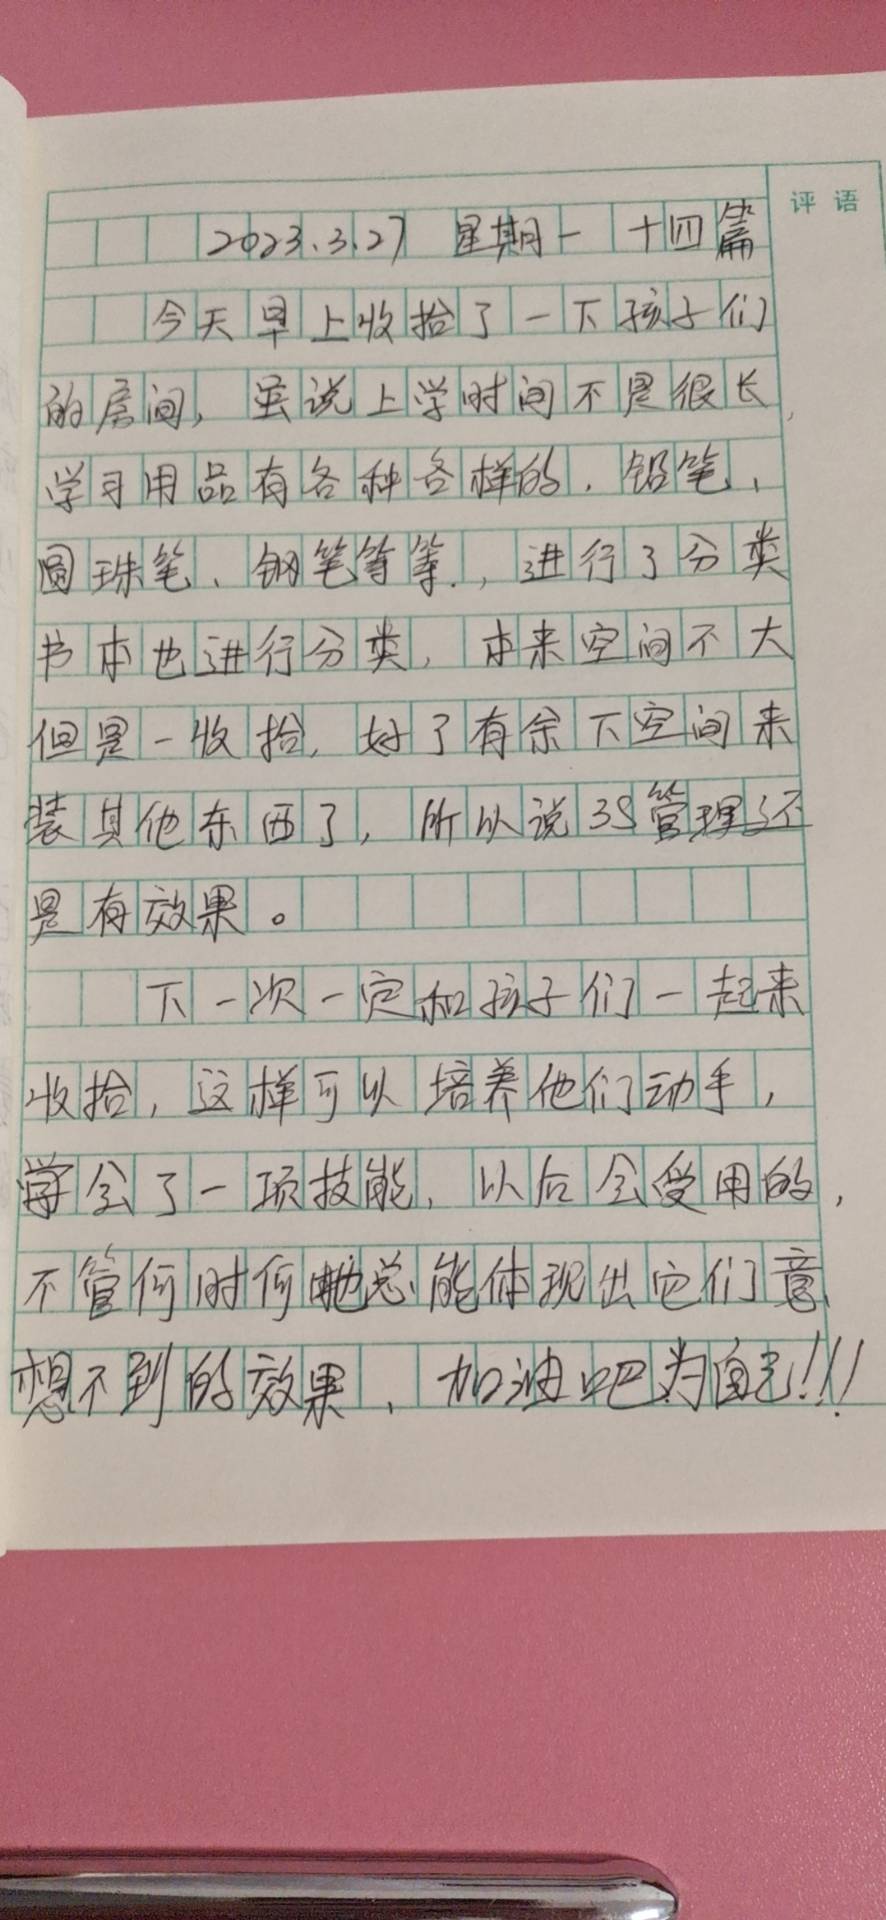 评语
2023.3.27 星期一 十四篇
今天早上收拾了一下孩子们
的房间,虽说上学时间不是很长,
学习用品有各种各样的.铅笔、
圆珠笔、钢笔等等.,进行了分类
书本也进行分类,本来空间不大
但是一收拾,好了有余下空间来
装其他东西了,所以说3S管理还
是有效果。
下一次一定和孩子们一起来
收拾,这样可以培养他们动手,
学会了一项技能,以后会受用的,
不管何时何地总能体现出它们意
想不到的效果,加油吧为自己!!!